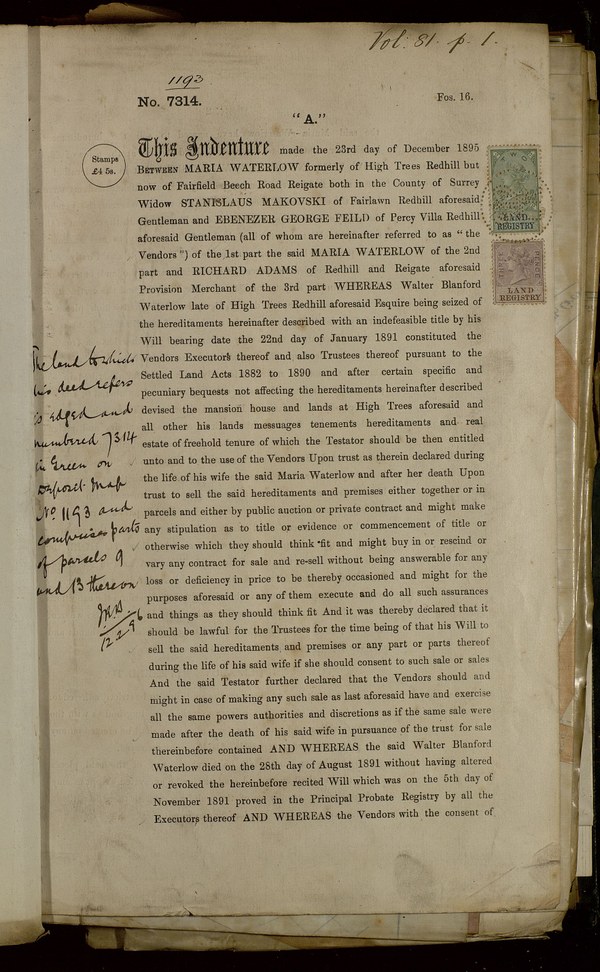 Vol: 81. p. 1.
1193
No. 7314.
Fos. 16.
"A."
Stamps
£4 5s.
This Indenture made the 23rd day of December 1895
Between MARIA WATERLOW formerly of High Trees Redhill but
now of Fairfield Beech Road Reigate both in the County of Surrey
Widow STANISLAUS MAKOVSKI of Fairlawn Redhill aforesaid
Gentleman and EBENEZER GEORGE FEILD of Percy Villa Redhill
aforesaid Gentleman (all of whom are hereinafter referred to as "the
Vendors") of the 1st part the said MARIA WATERLOW of the 2nd
part and RICHARD ADAMS of Redhill and Reigate aforesaid
Provision Merchant of the 3rd part WHEREAS Walter Blanford
Waterlow late of High Trees Redhill aforesaid Esquire being seized of
the hereditaments hereinafter described with an indefeasible title by his
Will bearing date the 22nd day of January 1891 constituted the
Vendors Executors thereof and also Trustees thereof pursuant to the
Settled Land Acts 1882 to 1890 and after certain specific and
pecuniary bequests not affecting the hereditaments hereinafter described
devised the mansion house and lands at High Trees aforesaid and
all other his lands messuages tenements hereditaments and real
estate of freehold tenure of which the Testator should be then entitled
unto and to the use of the Vendors Upon trust as therein declared during
the life of his wife the said Maria Waterlow and after her death Upon
trust to sell the said hereditaments and premises either together or in
parcels and either by public auction or private contract and might make
any stipulation as to title or evidence or commencement of title or
otherwise which they should think fit and might buy in or rescind or
vary any contract for sale and re-sell without being answerable for any
loss or deficiency in price to be thereby occasioned and might for the
purposes aforesaid or any of them execute and do all such assurances
and things as they should think fit And it was thereby declared that it
should be lawful for the Trustees for the time being of that his Will to
sell the said hereditaments and premises or any part or parts thereof
during the life of his said wife if she should consent to such sale or sales
And the said Testator further declared that the Vendors should and
might in case of making any such sale as last aforesaid have and exercise
all the same powers authorities and discretions as if the same sale were
made after the death of his said wife in pursuance of the trust for sale
thereinbefore contained AND WHEREAS the said Walter Blanford
Waterlow died on the 28th day of August 1891 without having altered
or revoked the hereinbefore recited Will which was on the 5th day of
November 1891 proved in the Principal Probate Registry by all the
Executors thereof AND WHEREAS the Vendors with the consent of
The land to which
this deed refers
is edged and
numbered 7314
in Green on
deposit Map
No 1193 and
comprises parts
of parcels 9
and 13 thereon
12-2-96
LAND
REGISTRY
LAND
REGISTRY